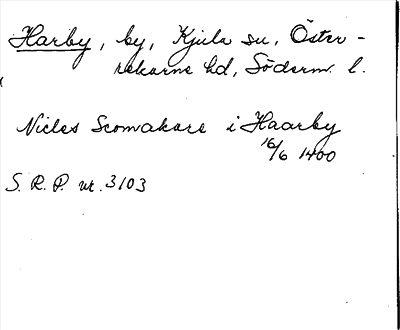 Harby, by, Kjula sn, Öster-
rekarne hd, Söderm. l.
Nicles Scomakare i Haarby
16/6 1400
S. R. P. nr. 3103